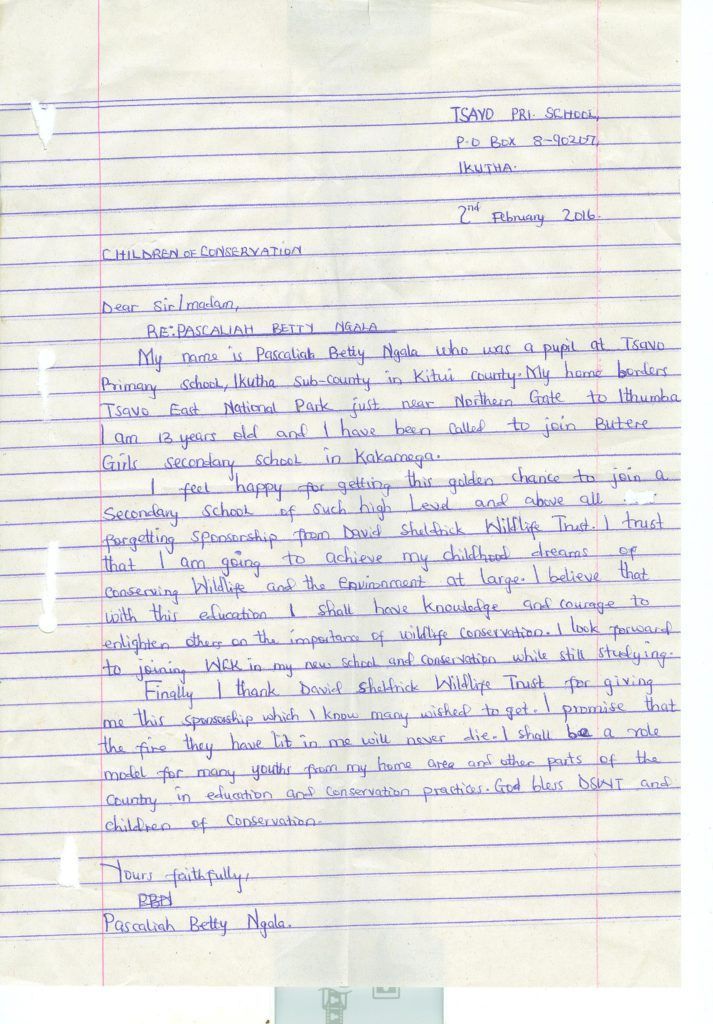 TSAVO PRI. SCHOOL,
P.O BOX 8-90207,
IKUTHA.
2nd February 2016.
CHILDREN OF CONSERVATION
Dear Sir/madam,
RE: PASCALIAH BETTY NGALA
My name is Pascaliah Betty Ngala who was a pupil at Tsavo
Primary school, Ikutha sub-county in Kitui county. My home borders
Tsavo East National Park just near Northern Gate to Ithumba
I am 13 years old and I have been called to join Butere
Girls secondary school in Kakamega.
I feel happy for getting this golden chance to join a
Secondary school of such high Level and above all
forgetting sponsorship from David Sheldrick Wildlife Trust. I trust
that I am going to achieve my childhood dreams of
conserving Wildlife and the Environment at large. I believe that
with this education I shall have knowledge and courage to
enlighten others on the importance of wildlife conservation. I look forward
to joining WCK in my new school and conservation while still studying.
Finally I thank David Sheldrick Wildlife Trust for giving
me this sponsorship which I know many wished to get. I promise that
the fire they have lit in me will never die. I shall be a role
model for many youths from my home area and other parts of the
Country in education and conservation practices. God bless DSWT and
children of Conservation.
Yours faithfully,
PBN
Pascaliah Betty Ngala.